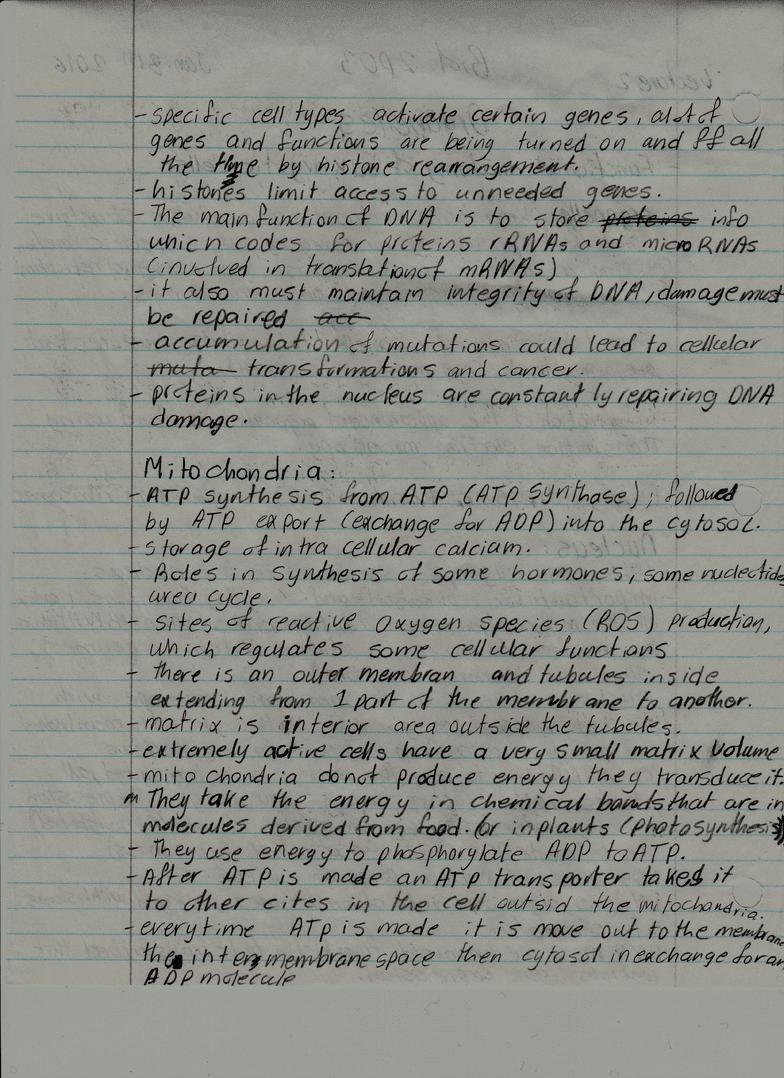 - specific cell types activate certain genes, alot of
genes and functions are being turned on and off all
the time by histone rearrangement.
- histones limit access to unneeded genes.
- The main function of DNA is to store proteins info
which codes for proteins rRNAs and micro RNAs
(involved in translation of mRNAs)
- it also must maintain integrity of DNA, damage must
be repaired acc
- accumulation of mutations could lead to cellular
muta transformations and cancer.
- proteins in the nucleus are constantly repairing DNA
damage.
Mitochondria:
- ATP synthesis from ATP (ATP synthase); followed
by ATP export (exchange for ADP) into the cytosol.
- storage of intra cellular calcium.
- Roles in synthesis of some hormones, some nucleotide
urea cycle.
- sites of reactive oxygen species (ROS) production,
which regulates some cellular functions
- there is an outer membran and tubules inside
extending from 1 part of the membrane to another.
- matrix is interior area outside the tubules.
- extremely active cells have a very small matrix volume
- mitochondria donot produce energy they transduce it.
They take the energy in chemical bonds that are in
molecules derived from food. Or in plants (photosynthesis)
- They use energy to phosphorylate ADP to ATP.
- After ATP is made an ATP transporter takes it
to other cites in the cell outsid the mitochondria.
- everytime ATP is made it is move out to the membrane
the inter membrane space then cytosol in exchange for an
ADP molecule